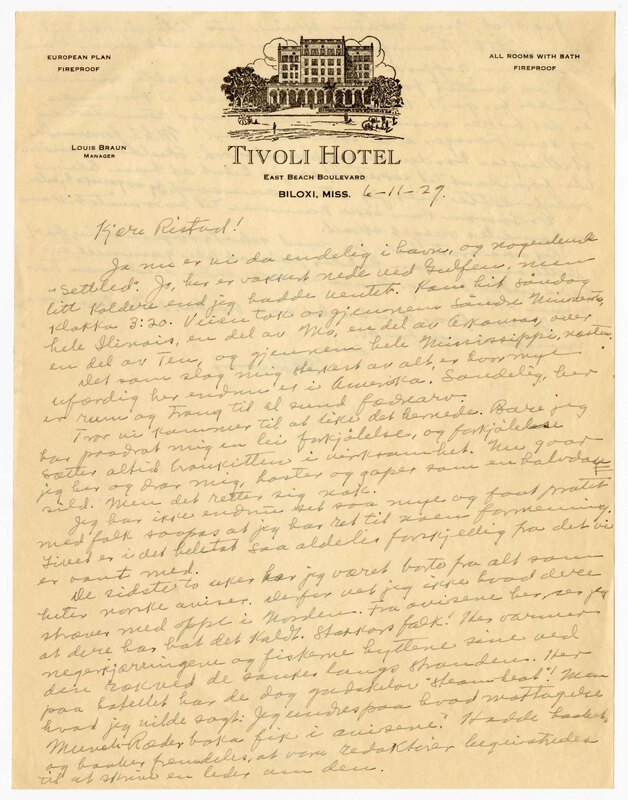 EUROPEAN PLAN
FIREPROOF
ALL ROOMS WITH BATH
FIREPROOF
LOUIS BRAUN
MANAGER
TIVOLI HOTEL
EAST BEACH BOULEVARD
BILOXI, MISS. 6-11-29.
Kjære Ristad!
Ja nu er vi da endelig i havn, og nogenlunde
"Settled". Jo, her er vakkert nede ved Gulfen, men
litt koldere end jeg hadde ventet. Kom hit Søndag
Klokka 3:20. Veien tok os gjennem Søndre Minnesota,
hele Ilinois, en del av Mo, en del av Arkansas, over
en del av Ten, og gjennem hele Mississippi, næsten.
Det som slog mig sterkest av alt, er hvor mye
ufærdig her endnu er i Amerika. Sandelig, her
er rum og trang til al sund fædrearv.
Tror vi kommer til at like det hernede. Bare jeg
har paadrat mig en lei forkjølelse, og forkjølelse
sætter altid bronkitten i virksomhet. Nu gaar
jeg her og drar mig, hoster og gaper som en halvdau
sild. Men det retter sig nok.
Jeg har ikke endnu set saa mye og faat pratet
med folk saapas at jeg har ret til noen formening.
Livet er i det heletat saa aldeles forskjellig fra det vi
er vant med.
De sidste to uker har jeg været borte fra alt som
heter norske aviser. Derfor vet jeg ikke hvad dere
stræver med oppe i Norden. Fra avisene her, ser jeg
at dere har hat det kaldt. Stakkars folk! Her varmer
negerkjærringene og fiskerne hyttene sine ved
den rækved de sanker langs stranden. Her
paa hotellet har de dog "Steam heat"! Men
hvad jeg vilde sagt: Jeg undres paa hvad mottagelse
Munch-Ræder boka fik i avisene? Hadde haabet,
og haaber fremdeles, at vore redaktører begeistredes
til at skrive en leder om den.